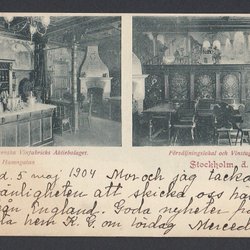 venska Vinfabricks Aktiebolaget.
Hamngatan
Försäljningslokal och Vinstug
Stockholm, d.
d. 5 maj 1904 Mor och jag tacka
änligheten att skicka oss
från England. Goda nyheter
ta hem K. G. om lördag Merced